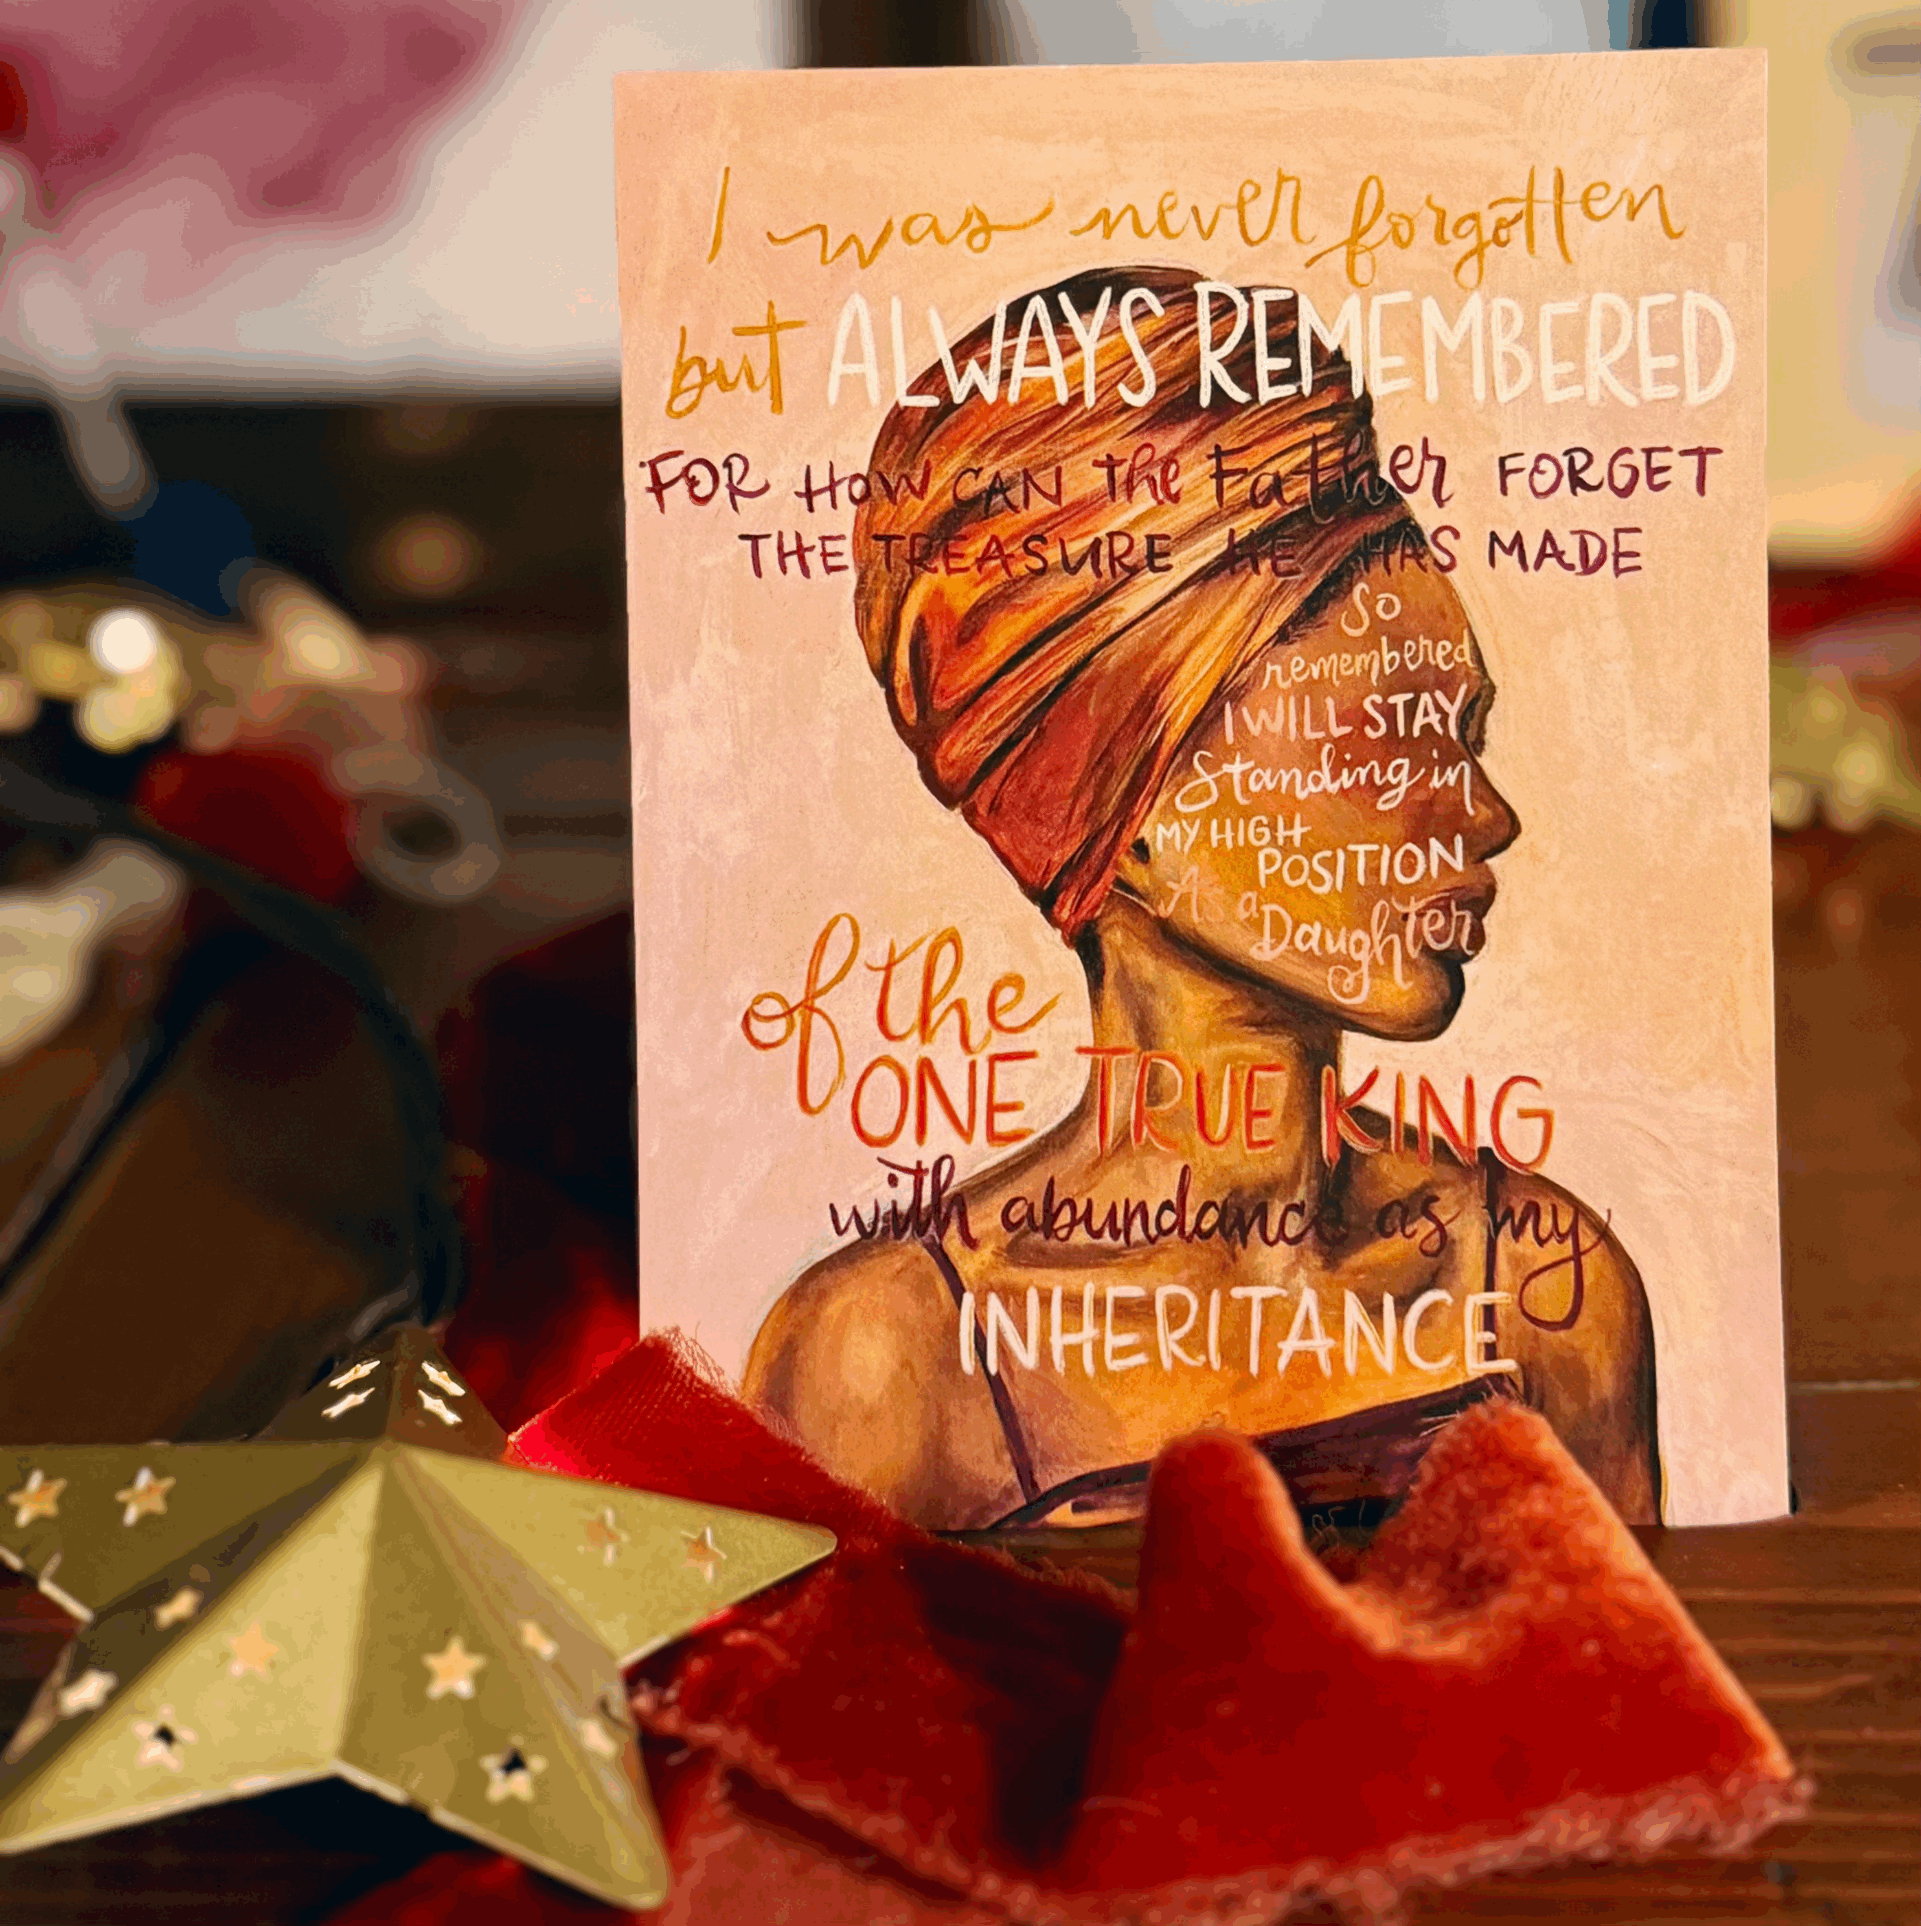 I was never forgotten
but ALWAYS REMEMBERED
FOR HOW CAN The Father FORGET
THE TREASURE HE HAS MADE
So
remembered
I WILL STAY
Standing in
MY HIGH
POSITION
As a
Daughter
of the
ONE TRUE KING
with abundance as my
INHERITANCE